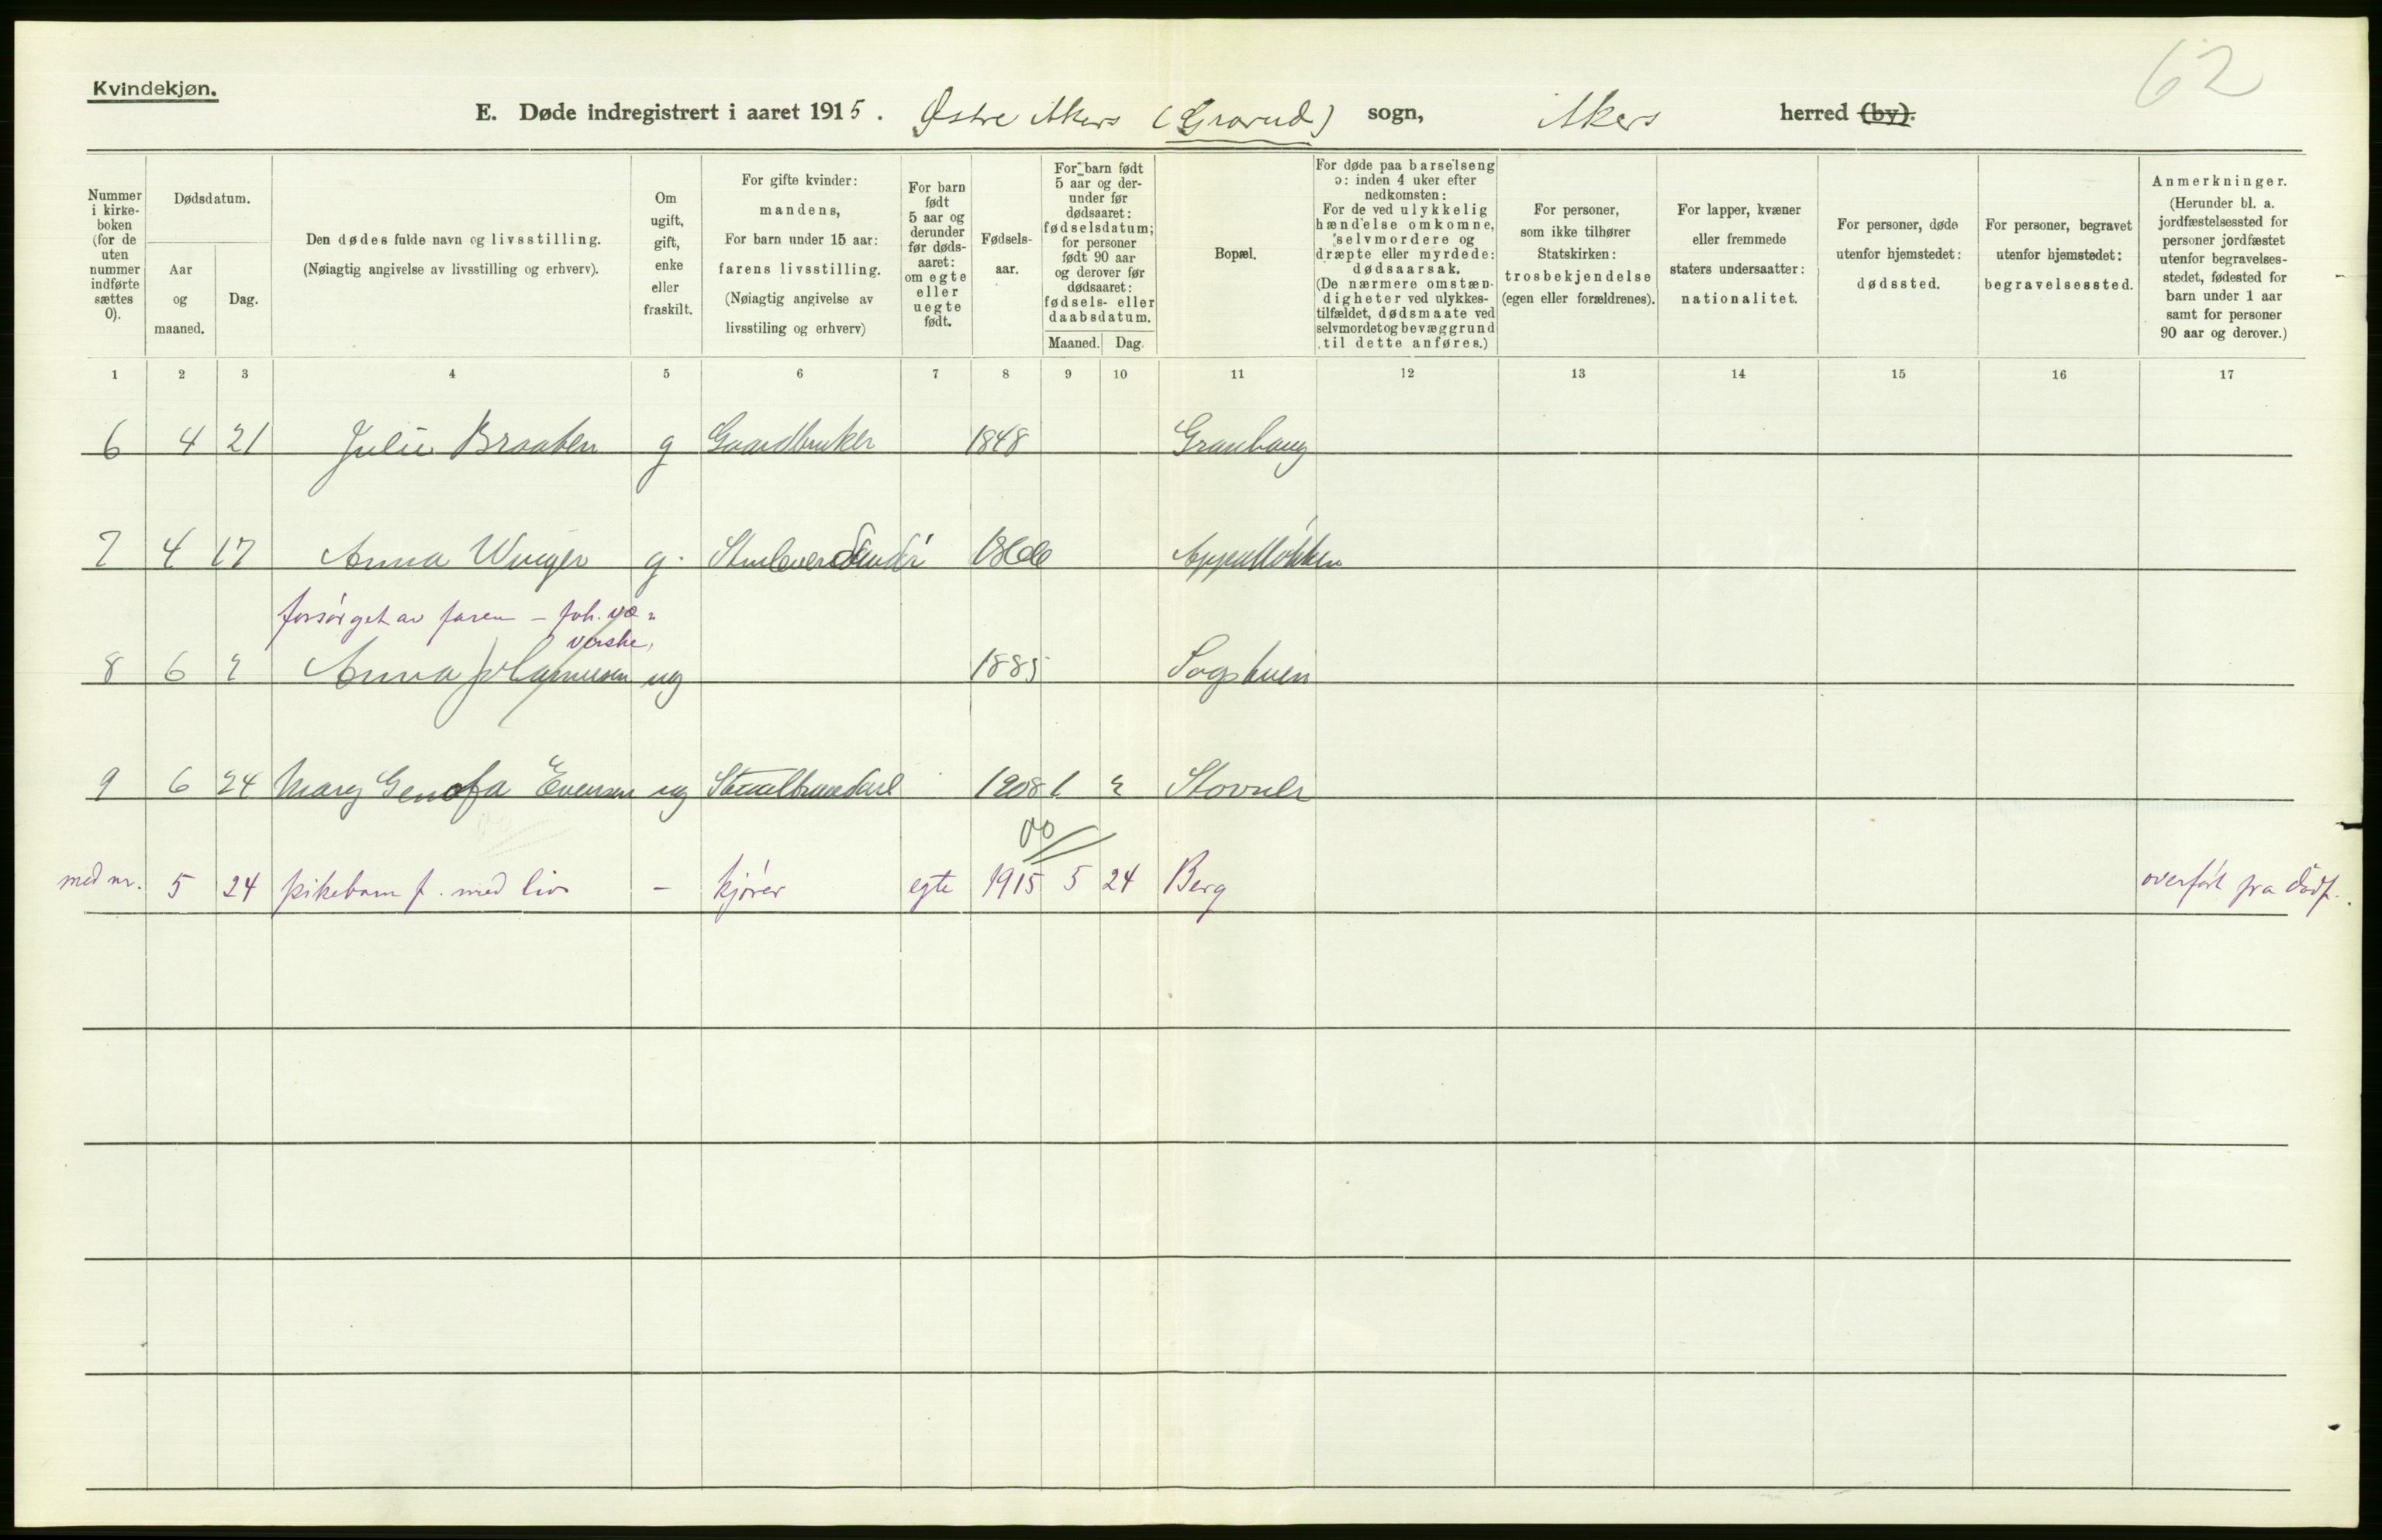 62
Kvindekjøn.
E. Døde indregistrert i aaret 1915. Østre Akers (Grorud) sogn, Akers herred (by).
Nummer i kirke-boken (for de uten nummer indførte sættes 0).
Dødsdatum.
Aar og maaned.
Dag.
Den dødes fulde navn og livsstilling.
(Nøiagtig angivelse av livsstilling og erhverv).
Om ugift, gift, enke eller fraskilt.
For gifte kvinder: mandens,
For barn under 15 aar: farens livsstilling.
(Nøiagtig angivelse av livsstiling og erhverv)
For barn født 5 aar og derunder før døds-aaret: om egte eller uegte født.
Fødsels-aar.
For barn født 5 aar og der-under før dødsaaret: fødselsdatum; for personer født 90 aar og derover før dødsaaret: fødsels- eller daabsdatum.
Maaned.
Dag.
Bopæl.
For døde paa barselseng ɔ: inden 4 uker efter nedkomsten:
For de ved ulykkelig hændelse omkomne, selvmordere og dræpte eller myrdede: dødsaarsak.
(De nærmere omstæn-digheter ved ulykkes-tilfældet, dødsmaate ved selvmordet og bevæggrund til dette anføres.)
For personer, som ikke tilhører Statskirken: trosbekjendelse (egen eller forældrenes).
For lapper, kvæner eller fremmede staters undersaatter: nationalitet.
For personer, døde utenfor hjemstedet: dødssted.
For personer, begravet utenfor hjemstedet: begravelsessted.
Anmerkninger.
(Herunder bl. a. jordfæstelsessted for personer jordfæstet utenfor begravelses-stedet, fødested for barn under 1 aar samt for personer 90 aar og derover.)
1 2 3 4 5 6 7 8 9 10 11 12 13 14 15 16 17
6 4 21 Julie Braaten g Gaardbruker 1848 Granhaug
7 4 17 Anna Winger g. 1866
forsörget av faren - fab. væ-
verske,
8 6 2 Anna ug 1885 Sogstuen
9 6 24 Mary Evensen ug 1908 1 2 Stovner
med nr. 5 24 pikebarn f. med liv - kjörer egte 1915 5 24 Berg overfört fra dödf.